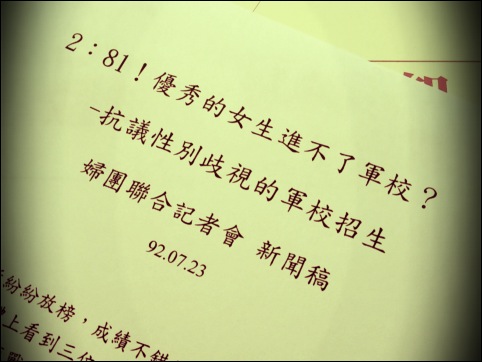 2：81！優秀的女生進不了軍校？
-抗議性別歧視的軍校招生
婦團聯合記者會 新聞稿
92.07.23
紛紛放榜，成績不錯
上看到三位